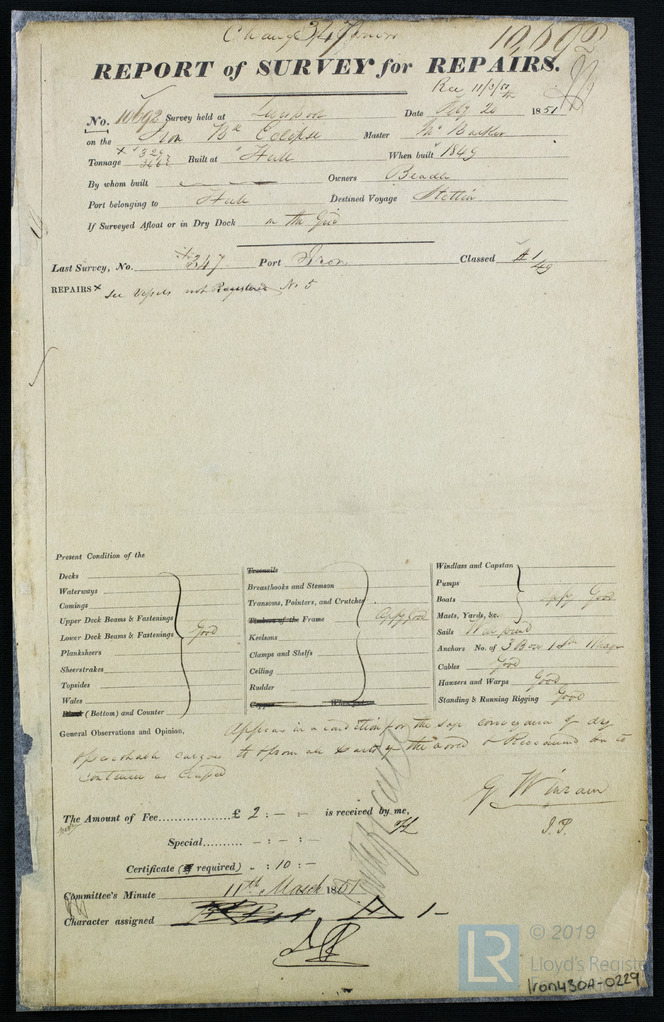 10,692
REPORT of SURVEY for REPAIRS.
Rec 11/3/51
No. 10692 Survey held at Date Feby 20 1851
on the Iron Bk Eclipse Master
Tonnage 329 Built at Hull When built 1849
By whom built Owners Beadle
Port belonging to Hull Destined Voyage Stettin
If Surveyed Afloat or in Dry Dock on the Grid
Last Survey, No. 347 Port Iron Classed A 1 /49
REPAIRS × See Vessels not Registered No 5
Present Condition of the
Decks
Waterways
Comings
Upper Deck Beams & Fastenings
Lower Deck Beams & Fastenings Good
Planksheers
Sheerstrakes
Topsides
Wales
(Bottom) and Counter
Treenails
Breasthooks and Stemson
Transoms, Pointers, and Crutches
Timbers of the Frame Appy Good
Keelsons
Clamps and Shelfs
Ceiling
Rudder
Copper When put on
Windlass and Capstan
Pumps
Boats appy Good
Masts, Yards, &c.
Sails
Anchors No. of 3 Bow 1
Cables Good
Hawsers and Warps Good
Standing & Running Rigging Good
General Observations and Opinion, Appears in a condition for the safe conveyance of dry
& perishable cargoes to & from all parts of the world & Recommend her to
continue as Classed
The Amount of Fee £ 2 : - : - is received by me,
Special - : - : -
Certificate (if required) - : 10 : -
Committee's Minute 11th March 1851
Character assigned A 1 -
LR
© 2019
Lloyd's Register
Iron430A-0229